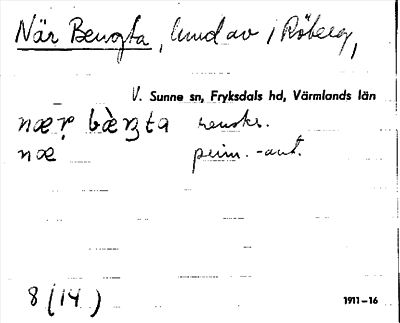 När Bengta, kund av i Röberg,
V. Sunne sn, Fryksdals hd, Värmlands län
næṛ bæ̀ŋta renskr.
næ prim.-ant.
8 (14)
1911–16